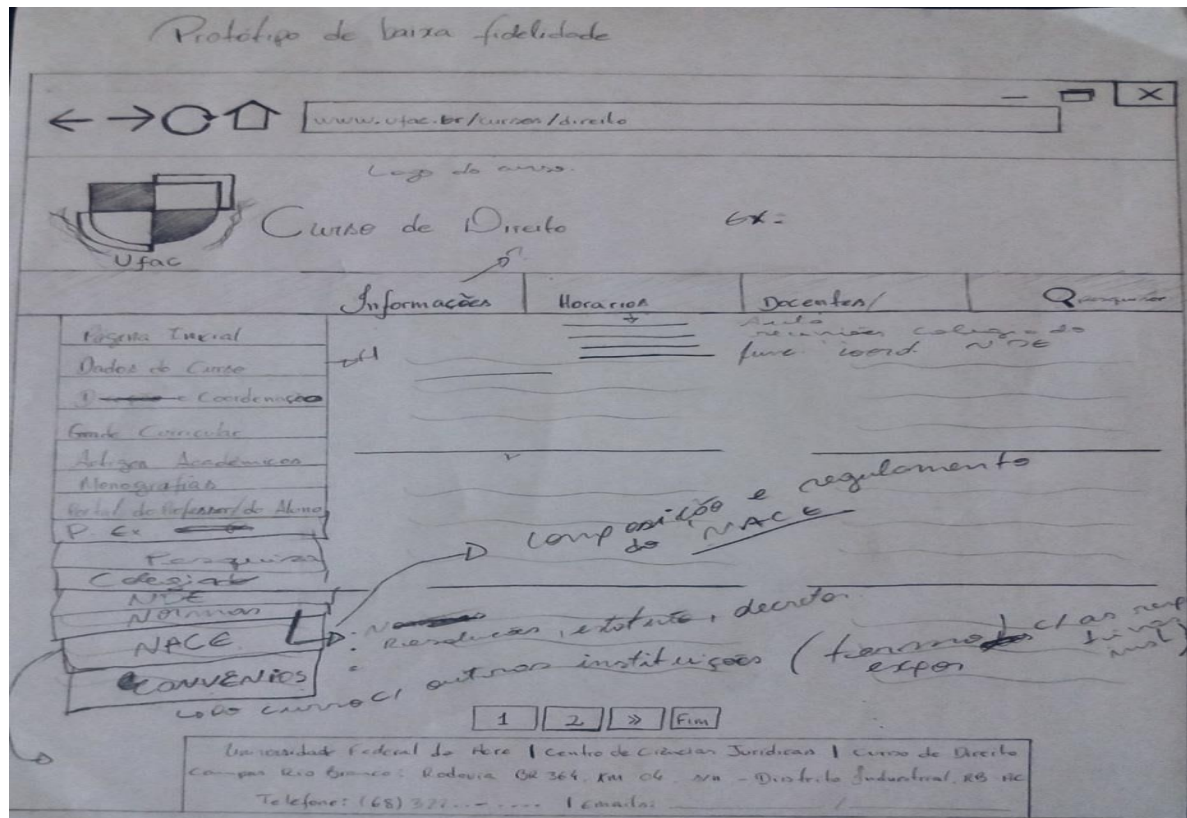 Protótipo de baixa fidelidade
www.ufac.br/cursos/direito
Logo do curso.
Ufac
Curso de Direito
Ex:
Informações
Horarios
Docentes/
Pesquisar
Página Inicial
Dados do Curso
e Coordenação
Grade Curricular
Artigos Acadêmicos
Monografias
Portal do Professor/do Aluno
P. Ex
Pesquisar
Colegiado
NDE
Normas
NACE
CONVENIOS
reuniões colegiado
func coord. NDE
composição e regulamento
do NACE
Resoluções, estatuto, decretos
c/ outras instituições (
1 2 » Fim
Universidade Federal do Acre | Centro de Ciências Jurídicas | Curso de Direito
Campus Rio Branco: Rodovia BR 364, Km 04 - Distrito Industrial. RB-AC
Telefone: (68) 32 | Emails: /